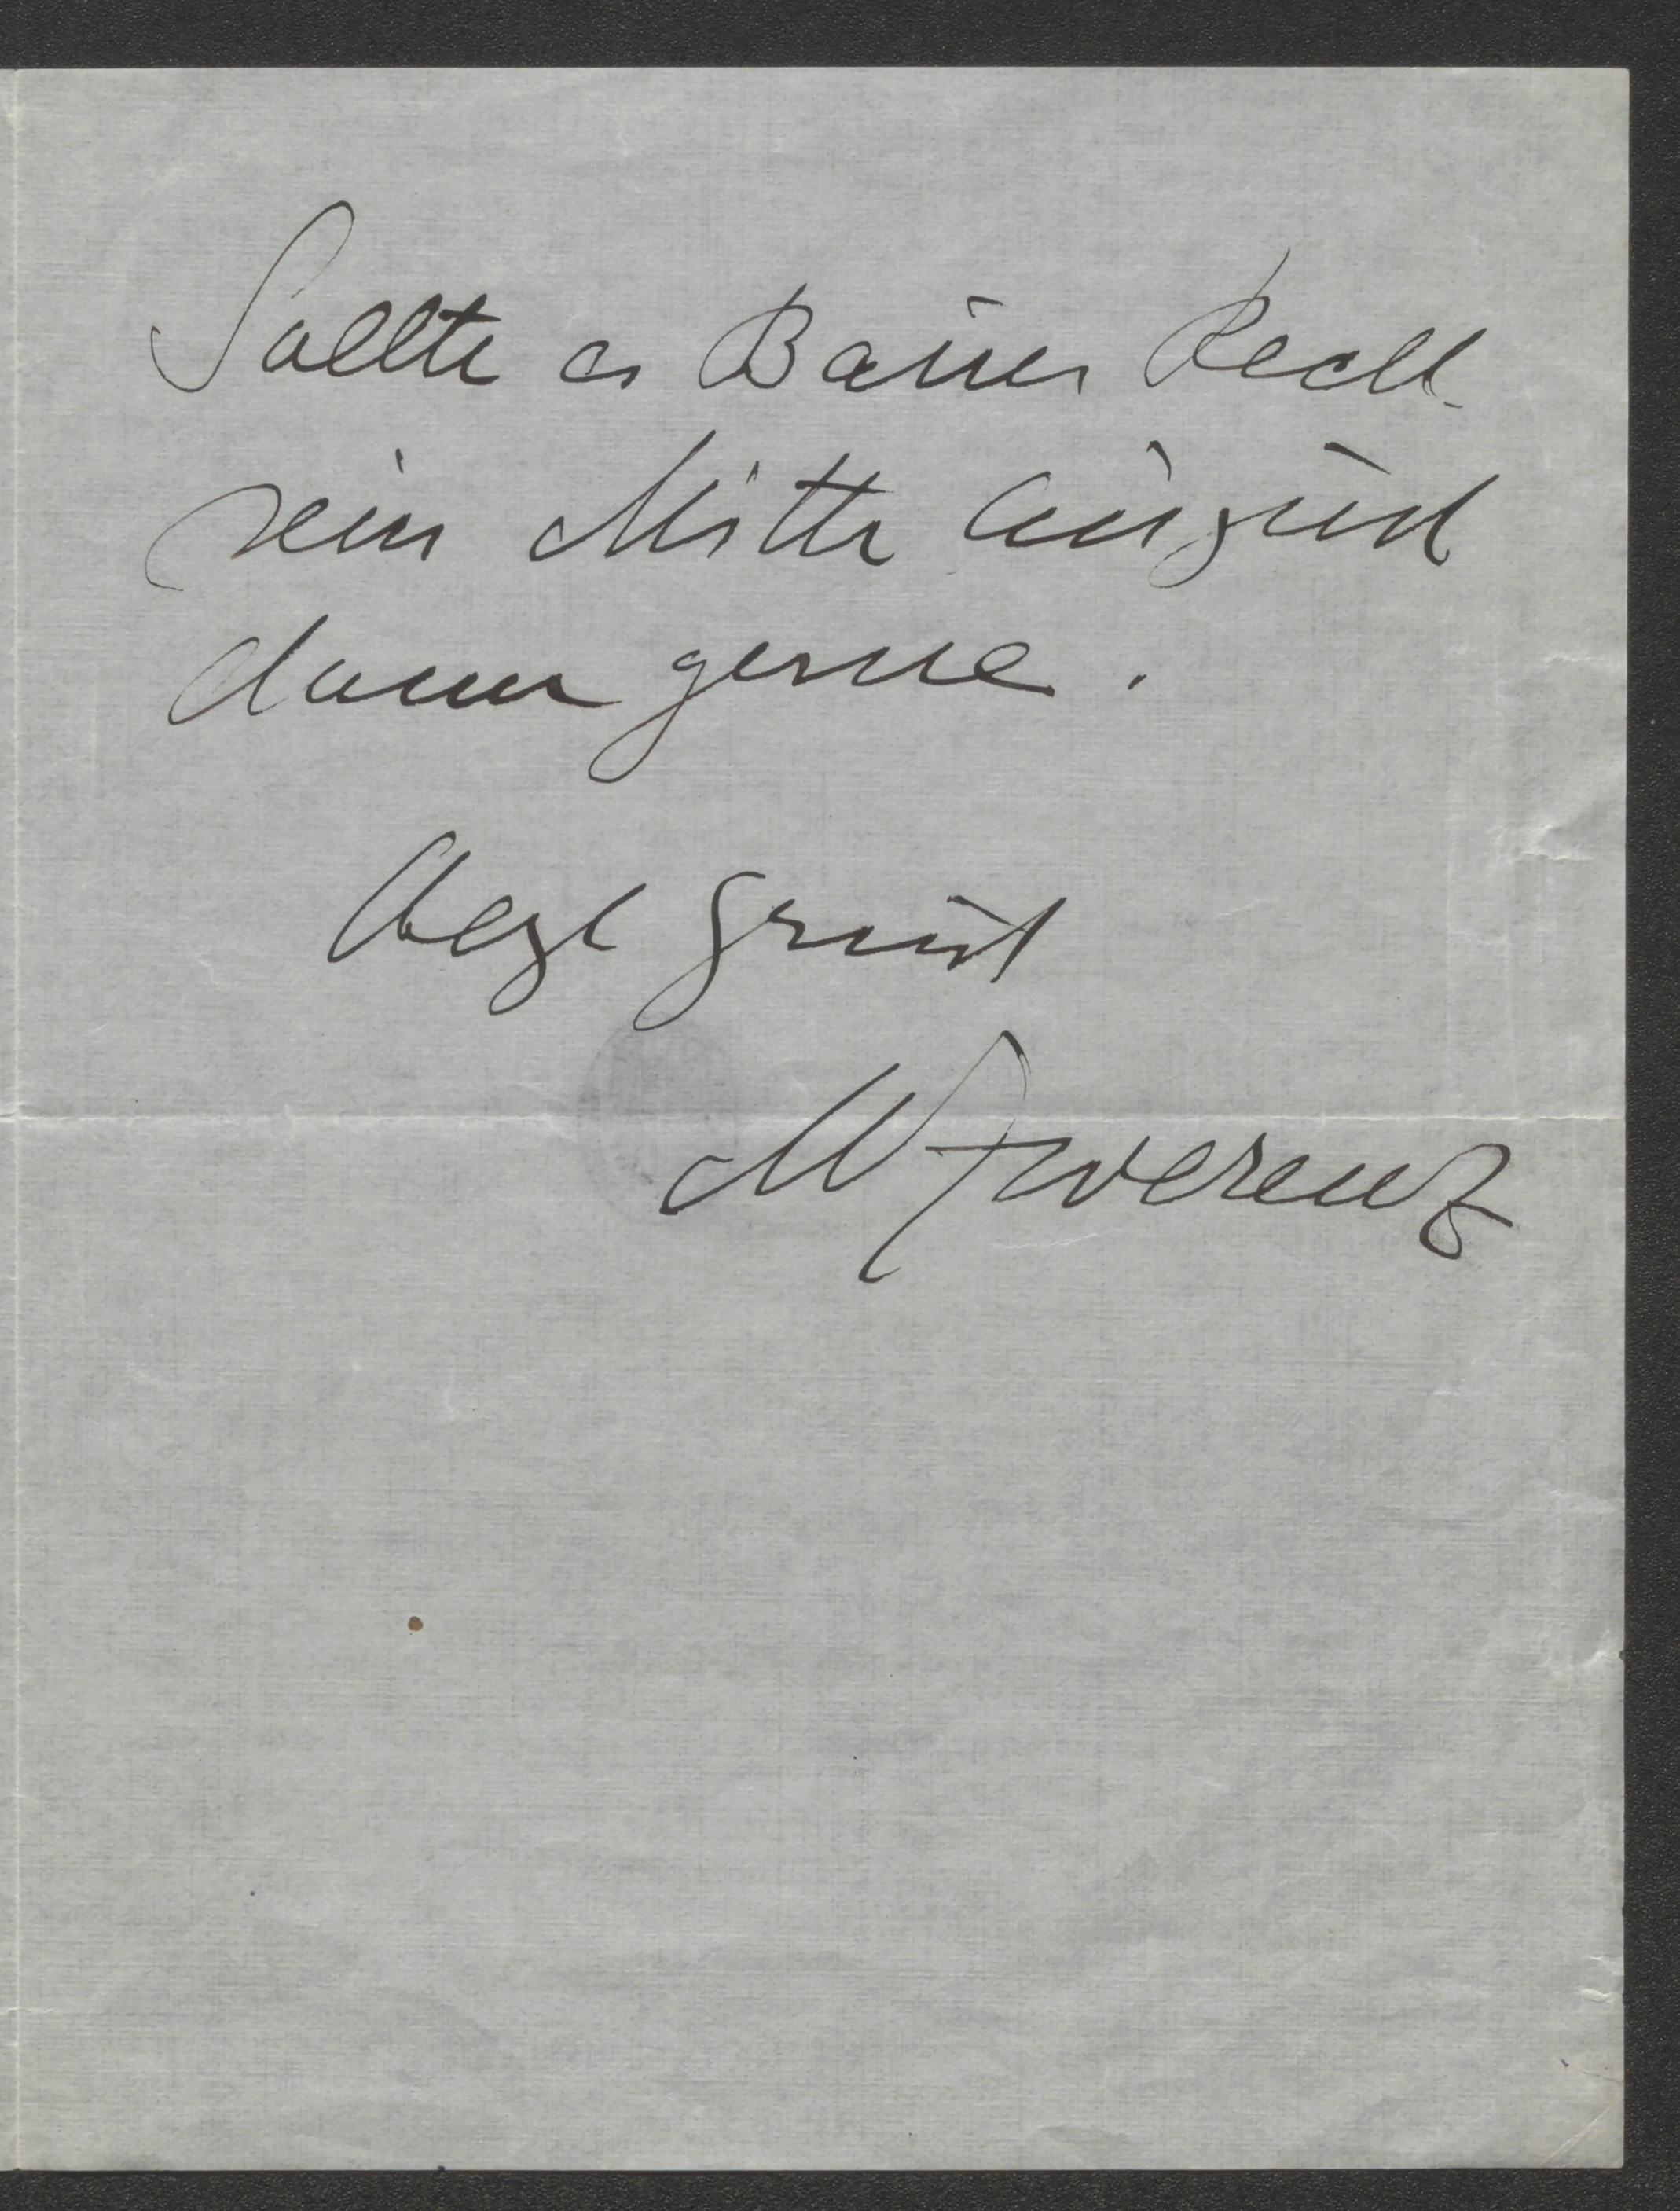 Sollte es Bauer Recht
sein Mitte August
dann gerne.
Herzl Grüßt
M Schwerenz